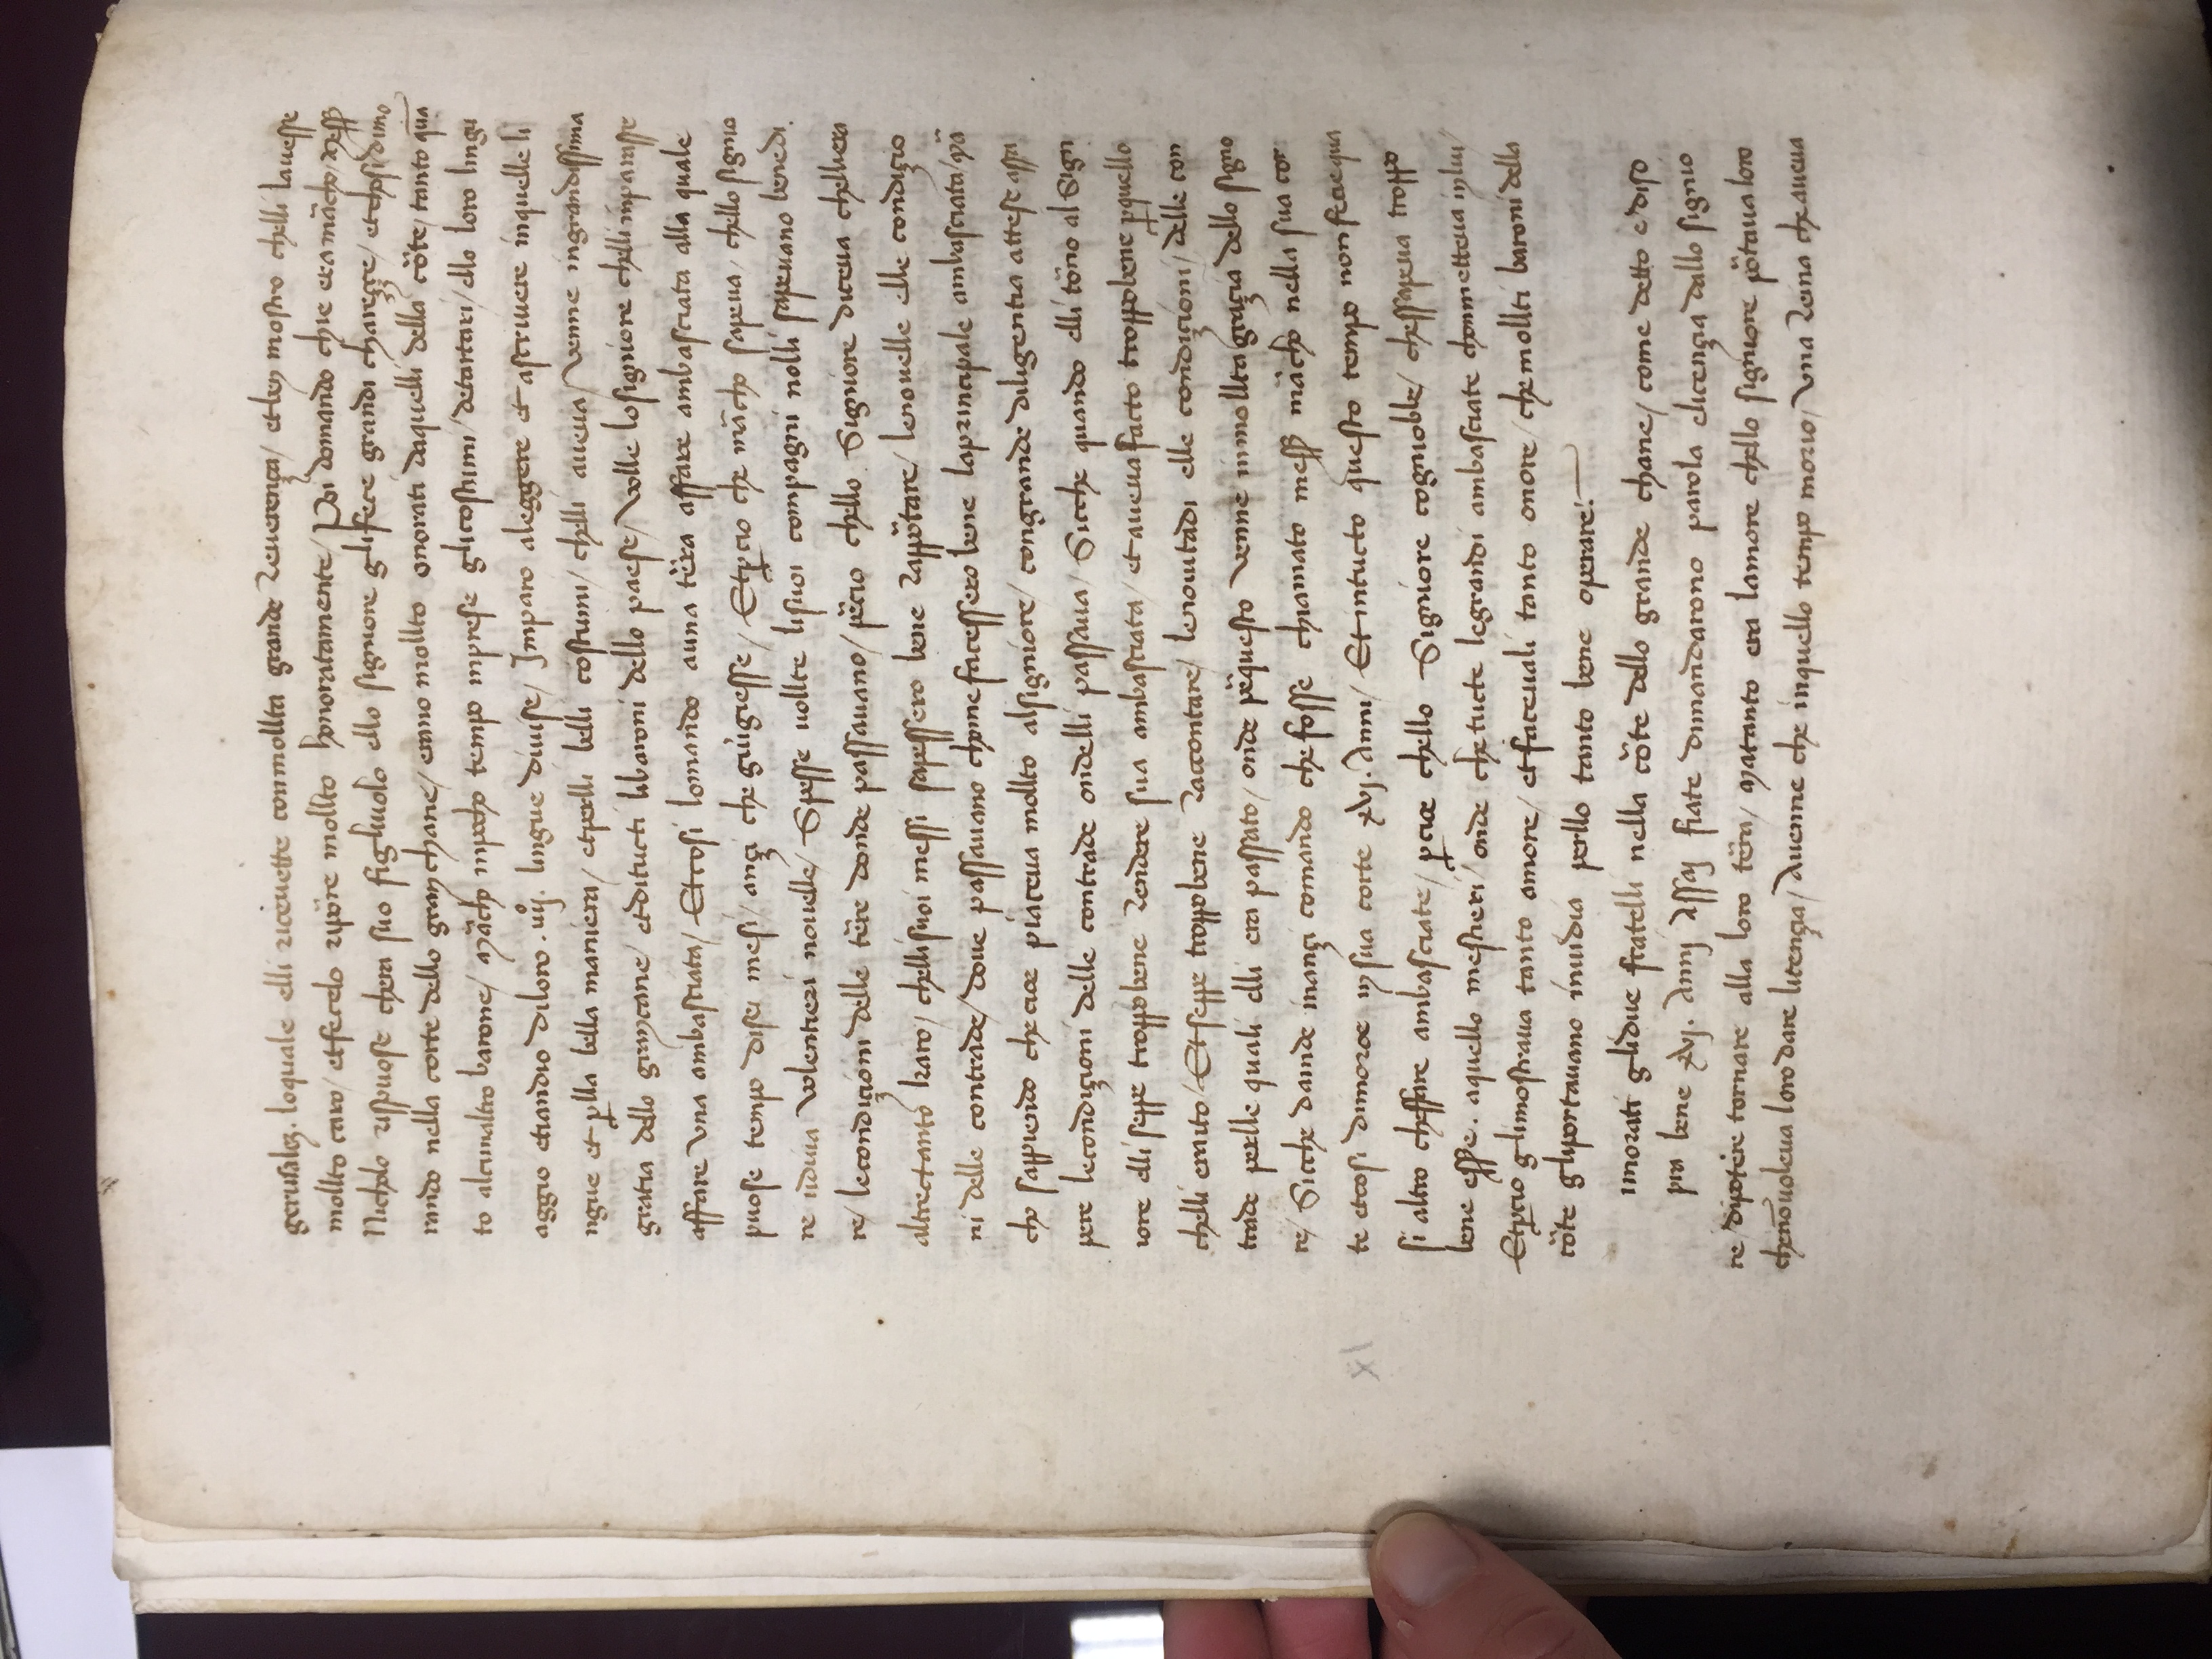 gerusaleʒ. loquale elli ricevette conmollta grande Reverença/ etben mostro chelli lavesse
mollto caro/ etfecelo ripōre mollto honoratamente/ Poi domando chie era mācho/ Mess̄
Nicholo rispuose chera suo figliuolo ello signiore glifece grandi chareçce/ etchosi dimo
rando nella corte dello gran chane/ erano mollto onorati daquelli della cōte/ tanto quā
to alcunaltro barone/ Mācho inpocho tempo inprese glicostumi/ detartari/ ello loro lingu
aggio etiandio diloro .iiijͦ. lingue divise/ Imparo aleggere et ascrivere inquelle li
ngue et ꝑlla bella maniera/ etperlli belli costumi/ chelli aveva/ venne ingrandissima
gratia dello grancane/ etditucti libaroni dello paese/ Volle losigniore chelli inparasse
affare una ambasciata/ Etcosi lomando auna tēra affare ambasciata alla quale
puose tempo disei mesi/ ançi che giūgiesse/ Etꝑcio che mācho sapeva/ chello signio
re udiva volentieri novelle/ Spesse vollte lisuoi compagni nolli sapevano benedi
re/ lecondiçioni delle tēre donde passavano/ pēcio chello Signiore diceva chelliera
altrectanto karo/ chellisuoi messi sapessero bene Rappōtare/ lenovelle elle condiçio
ni delle contrade/ dove passavano chome facessero bene laprincipale ambasciata/ Mā
cho sappiendo che cioe piaceva mollto alsigniore/ congrande diligentia attese assa
pere lecondiçioni delle contrade ondelli passava/ Sicche quando elli tōno al Sign
iore elli seppe troppobene Rendere sua ambasciata/ et aveva facto troppobene ꝑquello
chelli eraito/ Etseppe troppobene Raccontare/ lenovitadi elle condiçioni/ delle con
trade perlle quali elli era passato/ onde pēquesto venne inmollta graçia dello signo
re/ Sicche dainde inançi comando che fosse chiamato mess̄ mācho nella sua cor
te etcosi dimoroe in sua corte xvj. Anni/ Et intucto questo tempo non feciequa
si altro cheffare ambasciate/ ꝑcioe chello Signiore cognioble/ chessapeva troppo
bene ess̄e. aquello mestieri/ onde che tucte legrandi ambasciate chonmetteva in lui/
Etꝑcio glimostrava tanto amore/ etfacevali tanto onore/ chemollti baroni della
cōte gliportavano invidia perllo tanto bene operare:
imorati glidue fratelli nella cōte dello grande chane/ come detto e diso
pra bene xvj. Annj Assaj fiate dimandarono parola eliçençia dallo signio
re/ dipotere tornare alla loro tēra/ Matanto era lamore chello signiore pōtava loro
chenōvoleva loro dare licençia/ Avenne che inquello tempo morio/ Una Reina che aveva